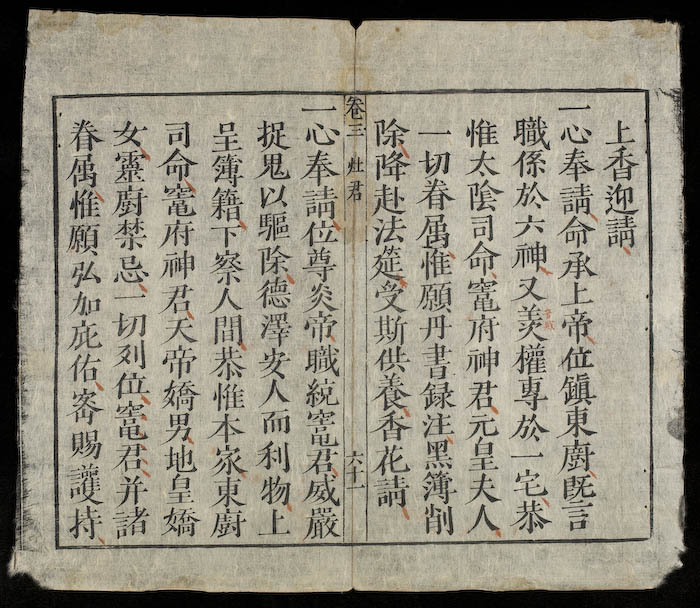 上香迎請
一心奉請命承上帝位鎮東廚既言
職係於六神又羨權專於一宅恭
惟太陰司命竃府神君元皇夫人
一切眷属惟願丹書録注黑簿削
除降赴法筵受斯供養香花請
卷三 灶君 六十一
一心奉請位尊炎帝職統竃君威嚴
捉鬼以驅除德澤安人而利物上
呈簿籍下察人間恭惟本家東廚
司命竃府神君天帝嬌男地皇嬌
女靈廚禁忌一切列位竃君并諸
眷属惟願弘加庇佑宻賜護持